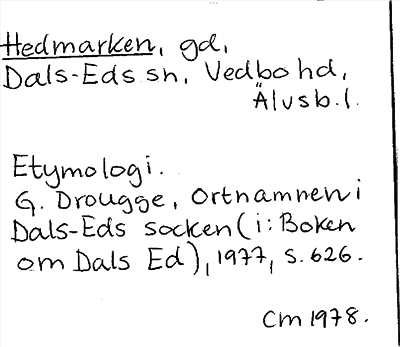 Hedmarken, gd,
Dals-Eds sn, Vedbo hd,
Älvsb. l.
Etymologi.
G. Drougge, Ortnamnen i
Dals-Eds socken (i: Boken
om Dals Ed), 1977, s. 626.
CM 1978.